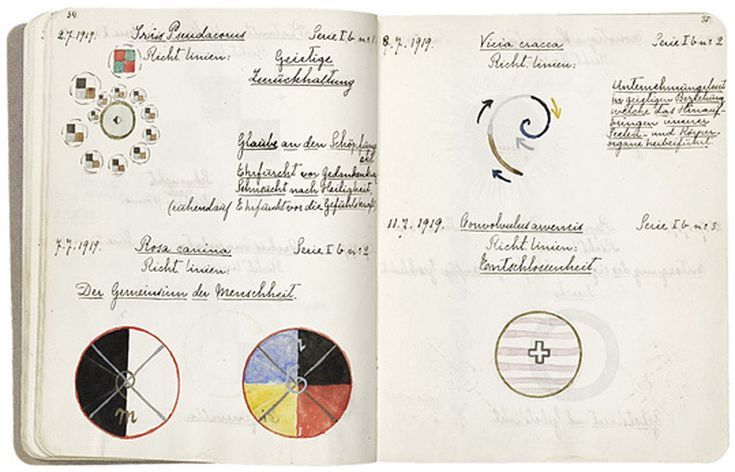 34.
2.7.1919. Iris Pseudacorus Serie I b. nr 1.
Richt linien: Geistige
Zurückhaltung
Glaube an den Schöpfung
Ehrfurcht vor Gedanken
Sehnsucht nach Heiligkeit.
(ruhend auf Ehrfurcht vor die Gefühlskraft)
7.7.1919. Rosa canina Serie I b nr 2
Richt linien:
Der Gemeinsinn der Menschheit.
m
35.
8.7.1919. Vicia cracca Serie I b nr 2
Richt. linien:
Unternehmungslust
in geistigen Beziehung
welche das Hinauf-
bringen unserer
Seelen- und Körper-
organe herbeiführt.
11.7.1919. Convolvulus arvensis Serie I b nr 3.
Richt linien:
Entschlossenheit